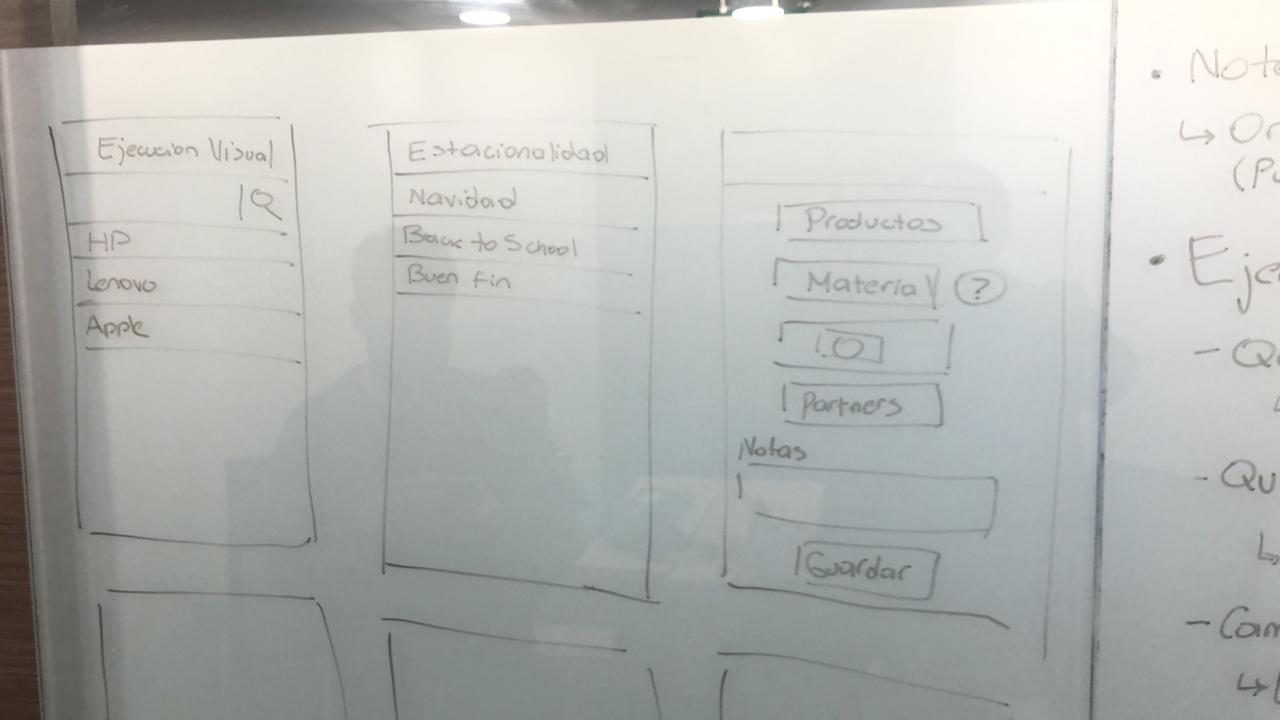 Ejecucion Visual
HP
Lenovo
Apple
Estacionalidad
Navidad
Back to School
Buen fin
Productos
Material ?
Partners
Notas
Guardar